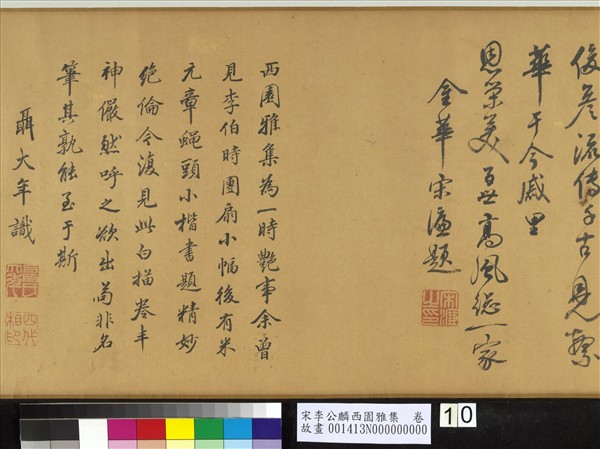 俊彥流傳千古見繁
華于今戚里
恩榮美百世高風總一家
金華宋濂題
西園雅集為一時艷事余曾
見李伯時團扇小幅後有米
元章蠅頭小楷書題精妙
絕倫今復見此白描卷丰
神儼然呼之欲出苟非名
筆其孰能至于斯
聶大年識
四代相印
宋李公麟西園雅集 卷
故畫 001413N000000000
10